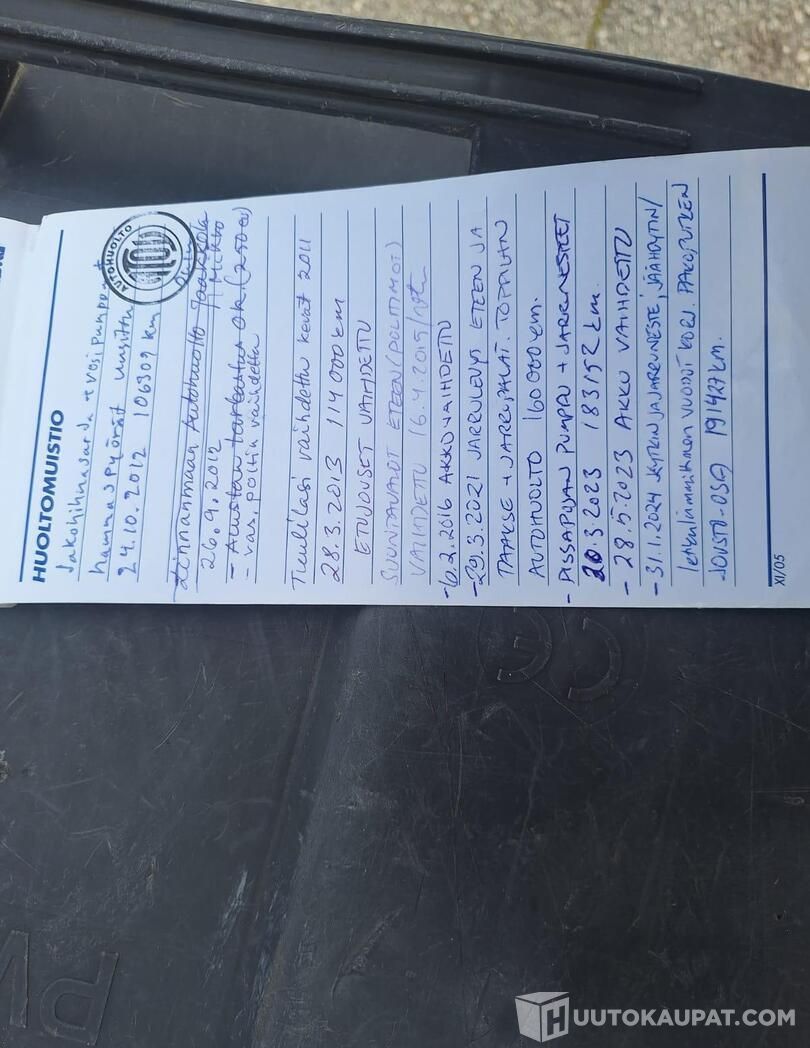 HUOLTOMUISTIO
Jakohihnasarja + vesipumppu +
hammaspyörät uusittu
24.10.2012 106309 km
AUTOHUOLTO
ATOY
Linnanmaan Autohuolto Jaakkola
26.9.2012
- Alustan tarkastus ok (250 €)
- vas. poltin vaihdettu
Tuulilasi vaihdettu kevät 2011
28.3.2013 114 000 km
ETUJOUSET VAIHDETTU
SUUNTAVALOT ETEEN (POLTTIMOT)
VAIHDETTU 16.4.2015
-6.2.2016 AKKU VAIHDETTU
-29.3.2021 JARRULEVYT ETEEN JA
TAAKSE + JARRUPALAT. TOPPILAN
AUTOHUOLTO 160 000 km.
- PISSAPOJAN PUMPPU + JARRUNESTEET
20.3.2023 183152 km.
- 28.5.2023 AKKU VAIHDETTU
-31.1.2024 JARRUNESTE, JÄÄHDYTIN/
letkulämmittimen VUODOT KORJ. PAKOPUTKEN
JOUSTO-OSA 191427 km.
XI/05
PV
HUUTOKAUPAT.COM